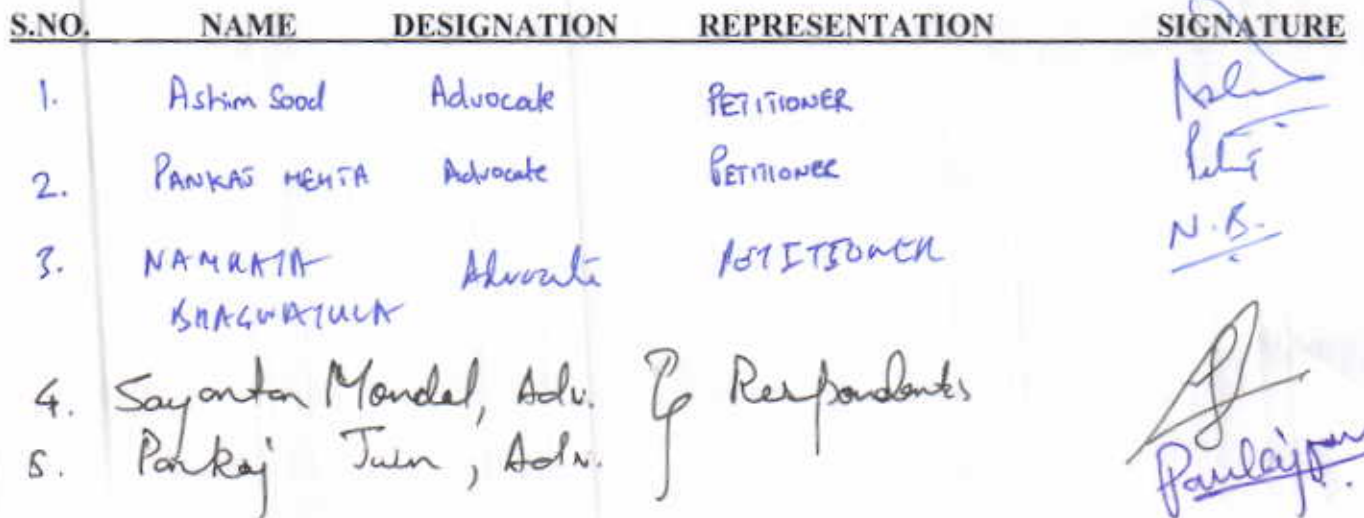 S.NO. NAME DESIGNATION REPRESENTATION SIGNATURE
1. Ashim Sood Advocate PETITIONER
2. PANKAJ MEHTA Advocate PETITIONER
3. NAMRATA Advocate PETITIONER N.B.
BHAGWATULA
4. Sayantan Mondal, Adv. Respondents
5. Pankaj Jain, Adv.